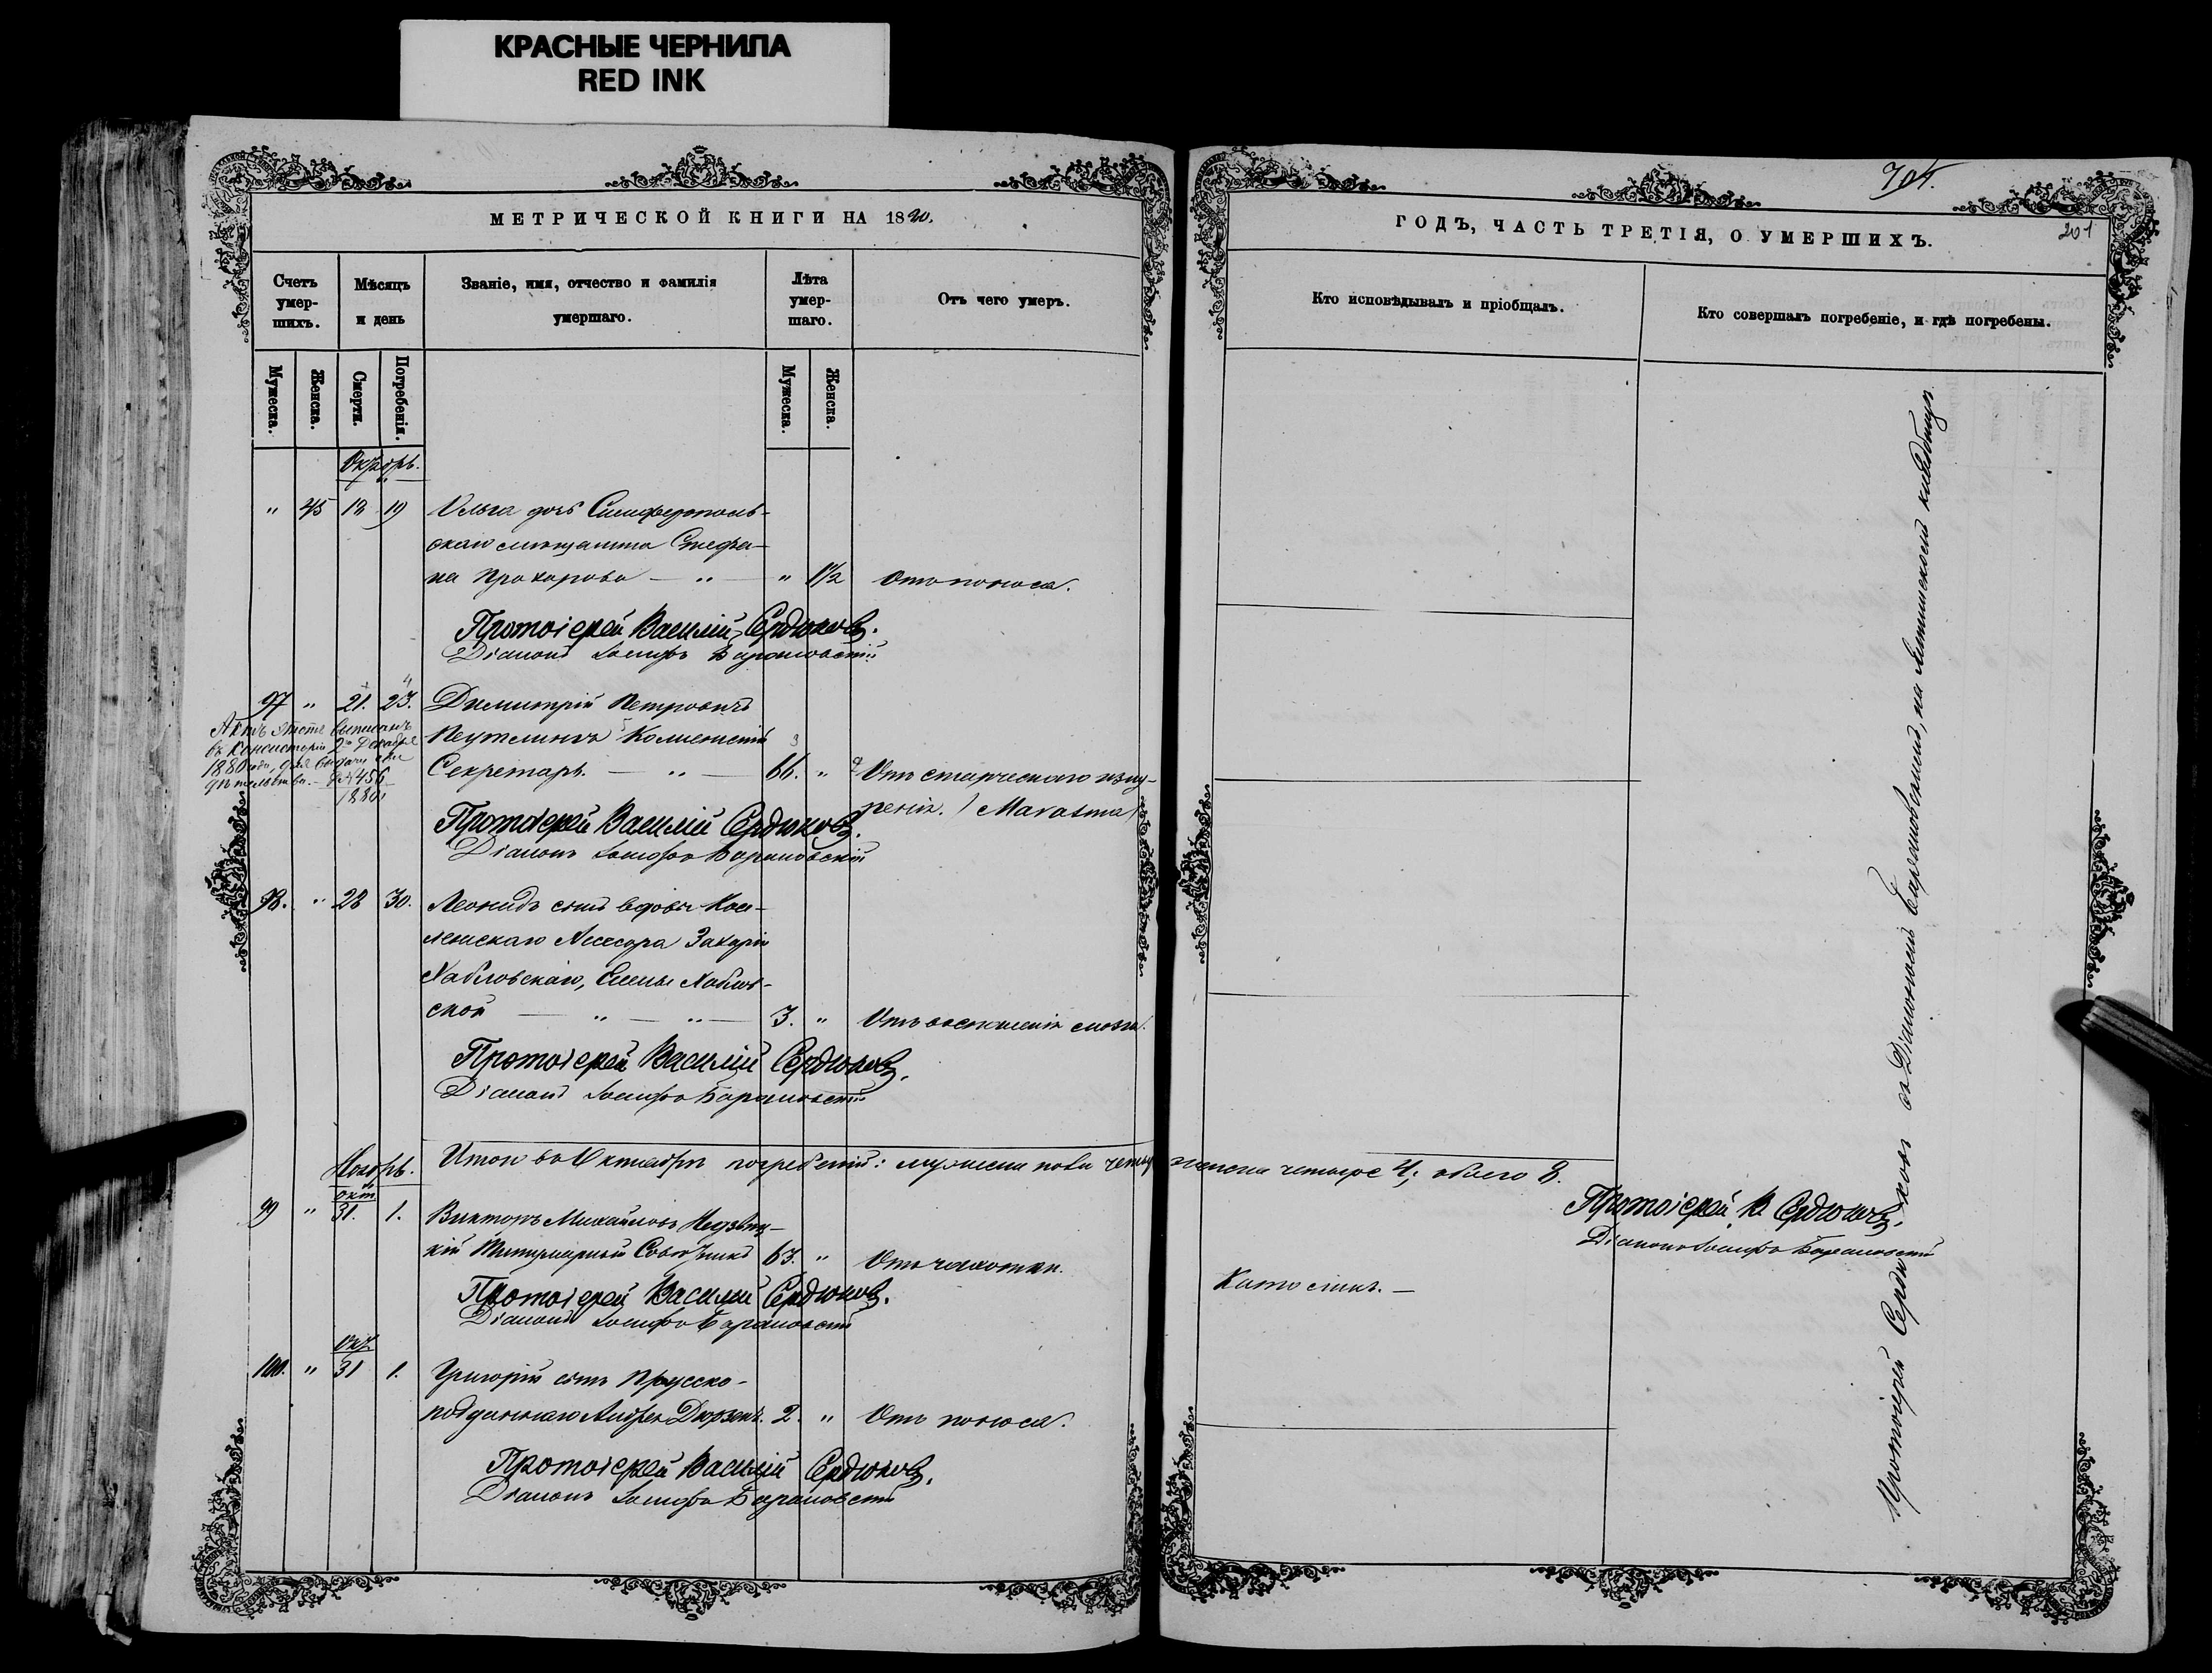 КРАСНЫЕ ЧЕРНИЛА
RED INK
МЕТРИЧЕСКОЙ КНИГИ НА 1880.
Счетъ умер-шихъ.
Мѣсяцъ и день
Званіе, имя, отчество и фамилія умершаго.
Лѣта умер-шаго.
Отъ чего умеръ.
Мужеска.
Женска.
Смерти.
Погребенія.
Мужеска.
Женска.
Октябрь.
" 45 18 19 Ольга дочь Симферополь-
скаго мѣщанина Стефа-
на Прохорова — " — " 1½ Отъ поноса.
Протоіерей Василій Сердюковъ.
Діаконъ Іосифъ Барановскій
97 " 21. 23. Димитрій Петровичъ
Коллежскій
Секретарь. — " — 66. " Отъ старческаго изну-
ренія. (Marasma)
Актъ этотъ выписанъ
въ Консисторіи 2го Декабря
1880 года, для выдачи сви
дѣтельства. — № 456
1880
Протоіерей Василій Сердюковъ.
Діаконъ Іосифъ Барановскій
98. " 28 30. Леонидъ сынъ вдовы Кол-
лежскаго Ассесора Захарія
Хабловскаго, Елены Хаблов-
ской — " — " — 3. " Отъ воспаленія мозга.
Протоіерей Василій Сердюковъ.
Діаконъ Іосифъ Барановскій
Итого въ Октябрѣ погребеній: мужеска пола четыре женска четыре 4; обоего 8.
Протоіерей В. Сердюковъ.
Діаконъ Іосифъ Барановскій
Ноябрь.
окт
99 " 31. 1. Викторъ Михайловъ
кій Титулярный Совѣтникъ 63. " Отъ чахотки.
Протоіерей Василій Сердюковъ.
Діаконъ Іосифъ Барановскій
Окт.
100. " 31 1. Григорій сынъ Прусско-
подданнаго Андрея Дюрзенъ. 2. " Отъ поноса.
Протоіерей Василій Сердюковъ.
Діаконъ Іосифъ Барановскій
705.
201
ГОДЪ, ЧАСТЬ ТРЕТІЯ, О УМЕРШИХЪ.
Кто исповѣдывалъ и пріобщалъ.
Кто совершалъ погребеніе, и гдѣ погребены.
Католикъ. —
Протоіерей Сердюковъ съ Діакономъ Барановскимъ, на кладбищѣ